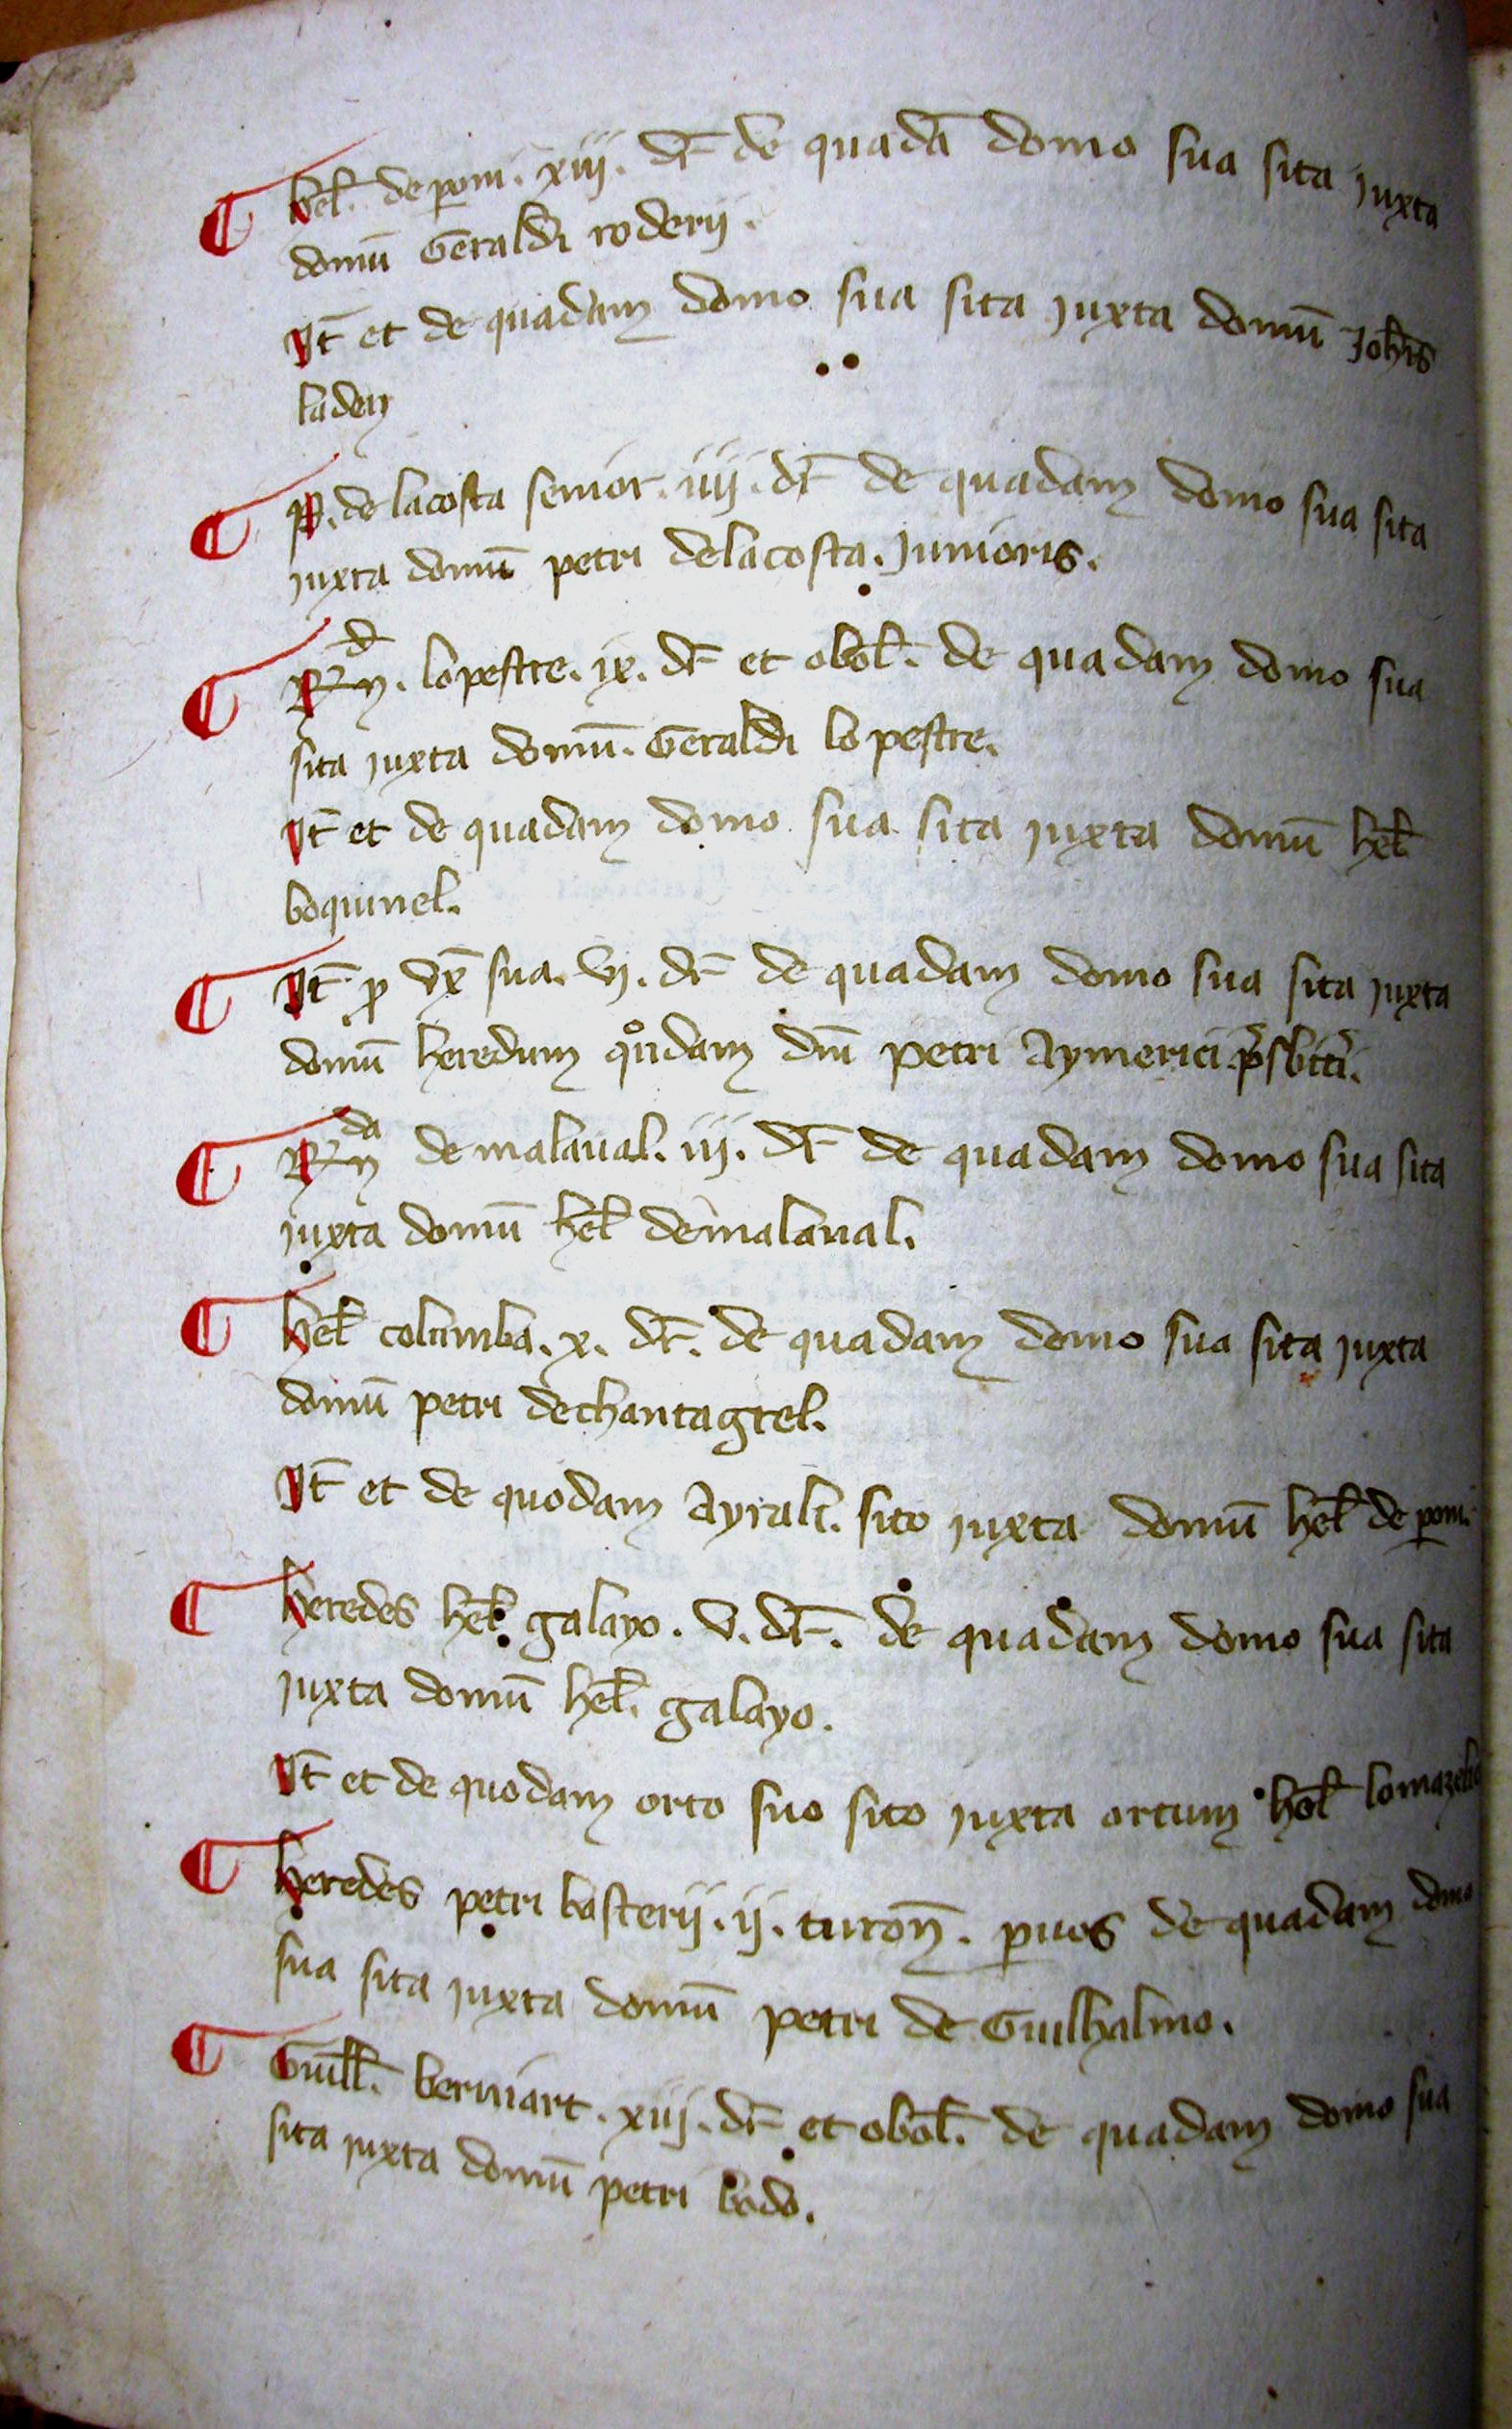 ¶ hel̃. de pom̃. xiij. dr̃ de quadã domo sua sita juxta
domũ Geraldi roderij.
It̃ et de quadam domo sua sita juxta domũ Joh̃is
laden
¶ P. de lacosta senior. iiij. dr̃ de quadam domo sua sita
juxta domũ petri delacosta. Junioris.
¶ Rᵈn. lopestre. ix. dr̃ et obol̃. de quadam domo sua
sita juxta domũ. Geraldi lo pestre.
It̃ et de quadam domo sua sita juxta domũ hel̃
boquinel.
¶ It̃ ꝓ vx̃ sua. vj. dr̃ de quadam domo sua sita juxta
domũ heredum quͦdam dñi petri Aymerici. p̃sbit̃i.
¶ Rᵈᵃn de malaual. iij. dr̃ de quadam domo sua sita
juxta domũ hel̃ demalaual.
¶ hel̃ columba. x. dr̃. de quadam domo sua sita juxta
domũ petri dechantagrel.
It̃ et de quodam Ayrali. sito juxta domũ hel̃ de pom̃.
¶ heredes hel̃ galayo. v. dr̃. de quadam domo sua sita
juxta domũ hel̃. galayo.
It̃ et de quodam orto suo sito juxta ortum hel̃
¶ heredes petri basterij. ij. turoñ. ꝑuos de quadam domo
sua sita juxta domũ petri de Guilhalmo.
¶ Guill̃. berniart. xiij. dr̃ et obol̃. de quadam domo sua
sita juxta domũ petri bodo.